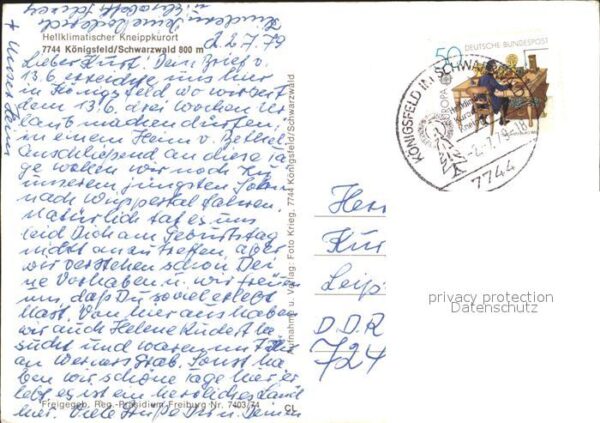 Heilklimatischer Kneippkurort
7744 Königsfeld/Schwarzwald 800 m
d. 2.7.79
Lieber Kurt! Dein Brief v.
13.6. erreichte uns hier
in Königsfeld wo wir seit
dem 13.6. drei Wochen Ur
laub machen dürfen,
in einem Heim v. Bethel
Anschließend an diese Ta
ge wollen wir noch zu
unserem jüngsten Sohn
nach Wuppertal fahren.
Natürlich tat es uns
leid Dich am Geburtstag
nicht anzutreffen, aber
wir verstehen schon Dei
ne Vorhaben u. wir freuen
uns, daß Du soviel erlebt
hast. Von hier aus haben
wir auch Helene be
sucht und waren
an Werners Grab. Sonst ha
ben wir schöne Tage hier er
lebt, es ist ein herrliches
hier. Viele Grüße
Freigegeb. Reg.-Präsidium Freiburg Nr. 7403/74
CL
Aufnahme u. Verlag: Foto Krieg, 7744 Königsfeld/Schwarzwald
50
DEUTSCHE BUNDESPOST
EUROPA
KÖNIGSFELD IM SCHWARZWALD
-2.-7.79-18
7744
Herr
Kur
Leip
DDR
724
privacy protection
Datenschutz